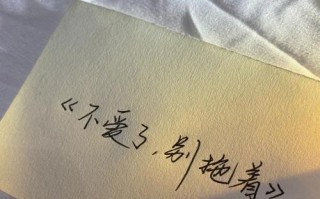 《不爱了，别拖着》